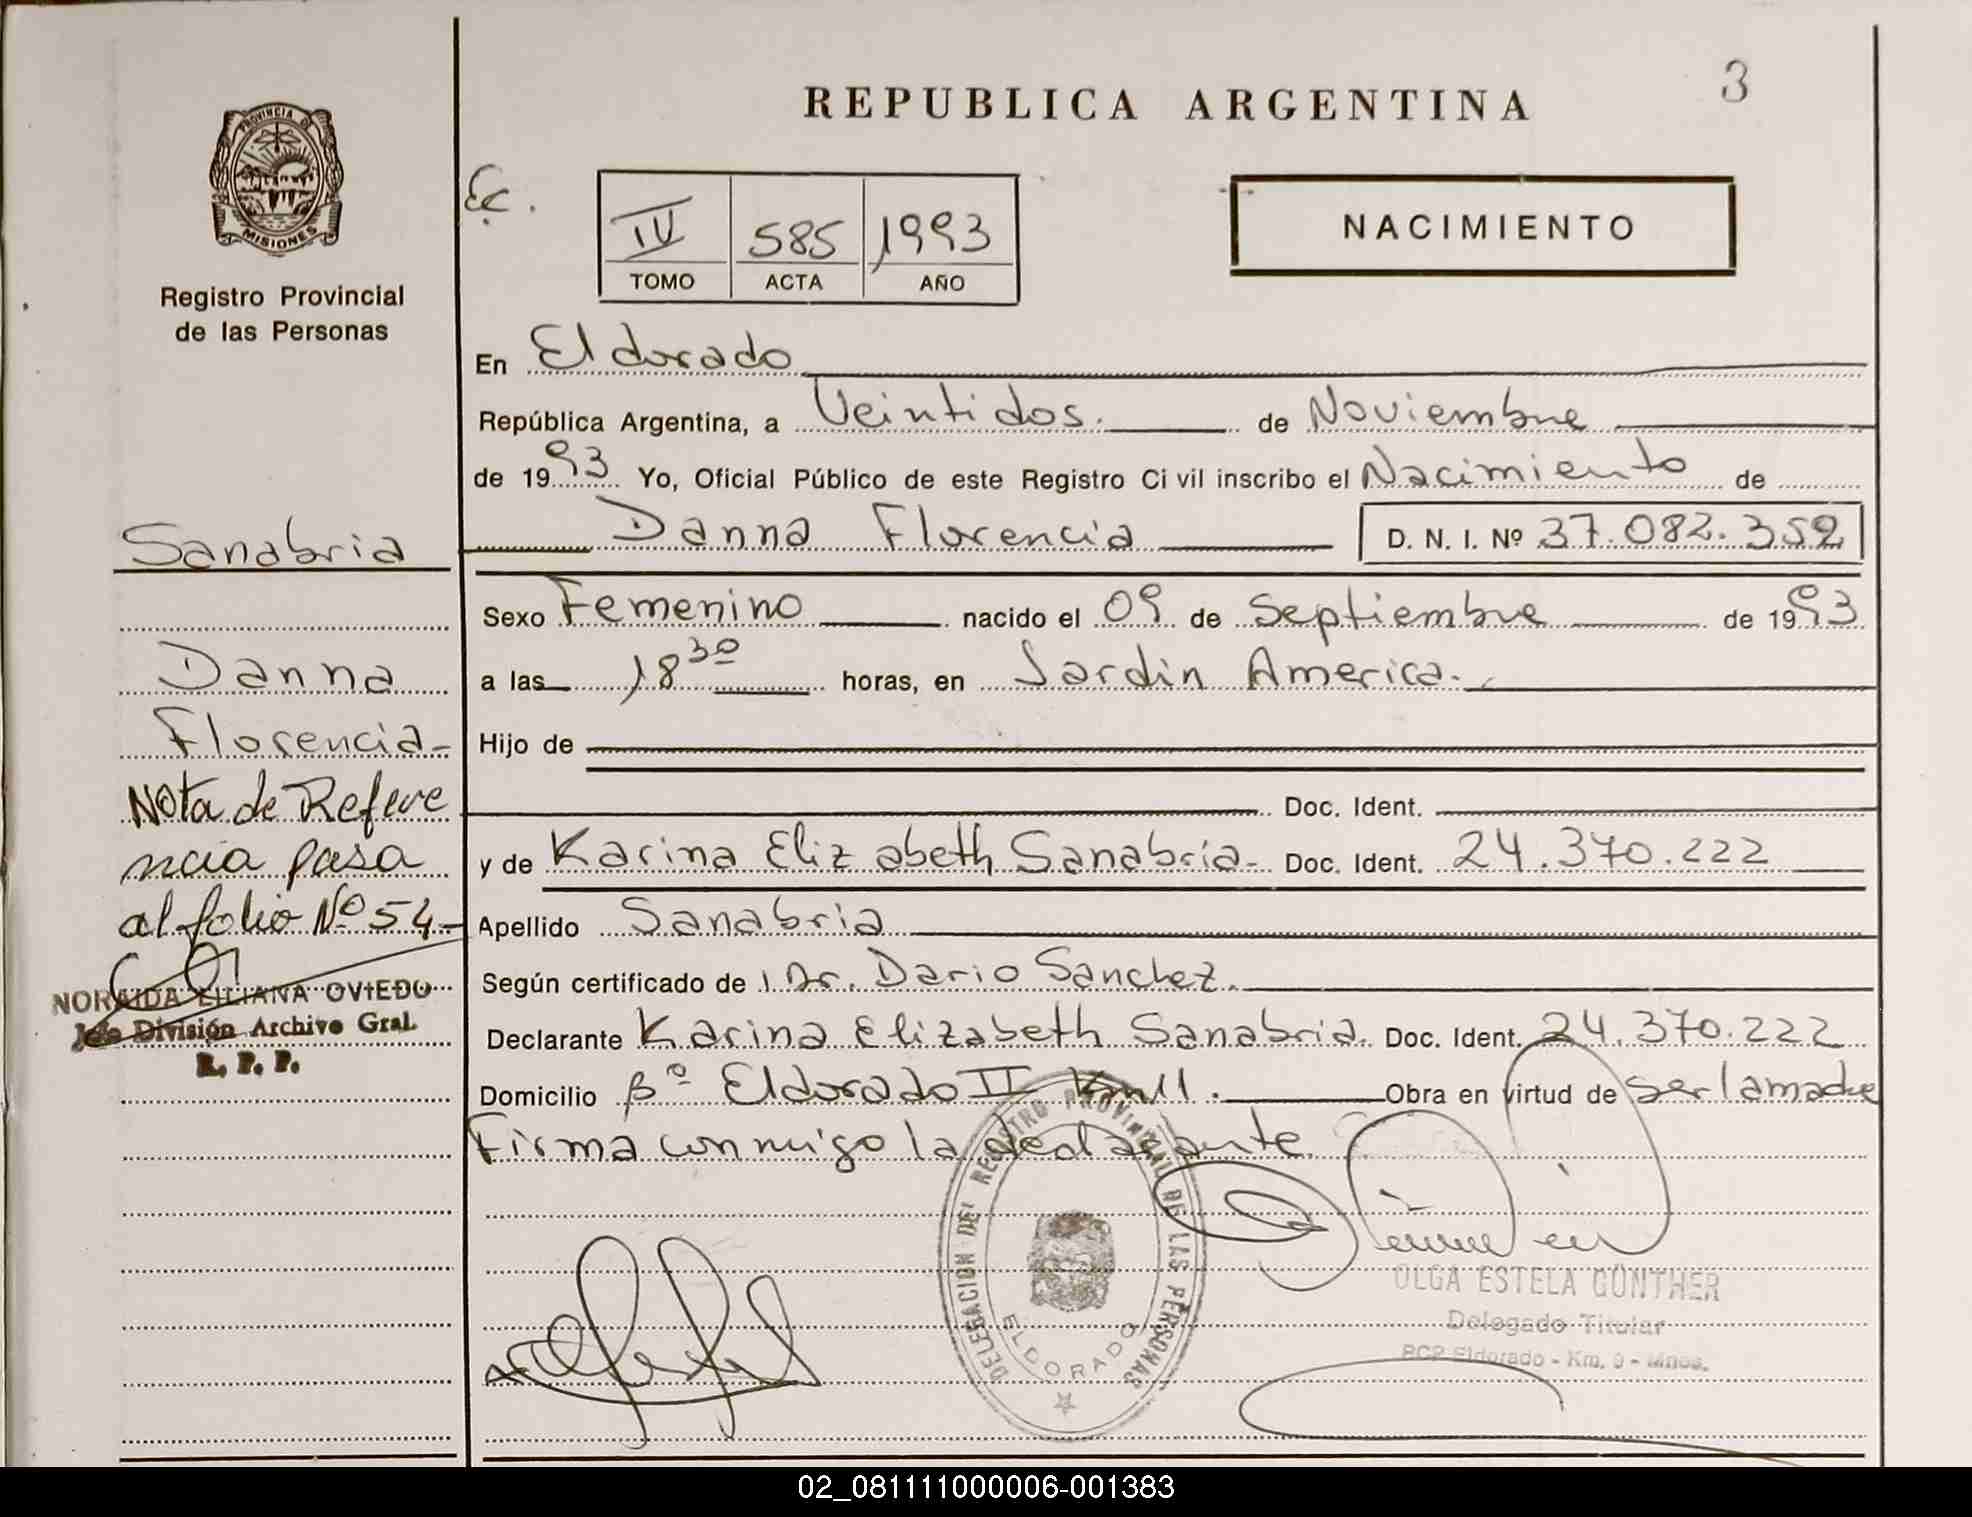 REPUBLICA ARGENTINA
3
PROVINCIA DE
MISIONES
Registro Provincial
de las Personas
IV 585 1993
TOMO ACTA AÑO
NACIMIENTO
En Eldorado
República Argentina, a Veintidos. de Noviembre
de 1993 Yo, Oficial Público de este Registro Civil inscribo el Nacimiento de
Danna Florencia D. N. I. Nº 37.082.352
Sexo Femenino nacido el 09 de Septiembre de 1993
a las 18 30 horas, en Jardin America.
Hijo de
Doc. Ident.
y de Karina Elizabeth Sanabria- Doc. Ident. 24.370.222
Apellido Sanabria
Según certificado de Dr. Dario Sanchez.
Declarante Karina Elizabeth Sanabria. Doc. Ident. 24.370.222
Domicilio Bº Eldorado II Km 11. Obra en virtud de ser la madre
Firma conmigo la declarante.
Sanabria
Danna
Florencia-
Nota de Refere
ncia pasa
al folio Nº 54-
NORAIDA LILIANA OVIEDO
Jefe División Archivo Gral.
R. P. P.
DELEGACION DEL REGISTRO PROVINCIAL DE LAS PERSONAS
ELDORADO
OLGA ESTELA GÜNTHER
Delegado Titular
RCP Eldorado - Km. 9 - Mnes.
02_081111000006-001383